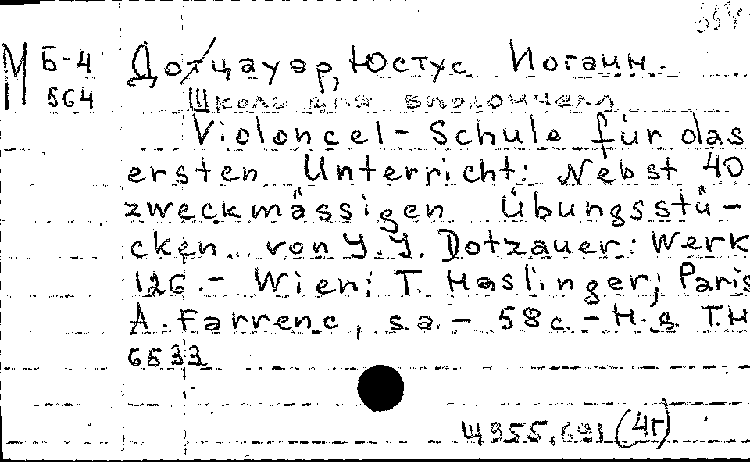 М Б-4 Дотцауэр, Юстус Иоганн.
564 Школа для виолончели
Violoncel-Schule für das
ersten Unterricht: Nebst 40
zweckmässigen Übungsstü-
cken von J. J. Dotzauer: Werk
126.- Wien; T. Haslinger; Paris
A. Farrenc, s.a.- 58 с.- Н.g. T.H
6533
Щ955.691 (4Г)